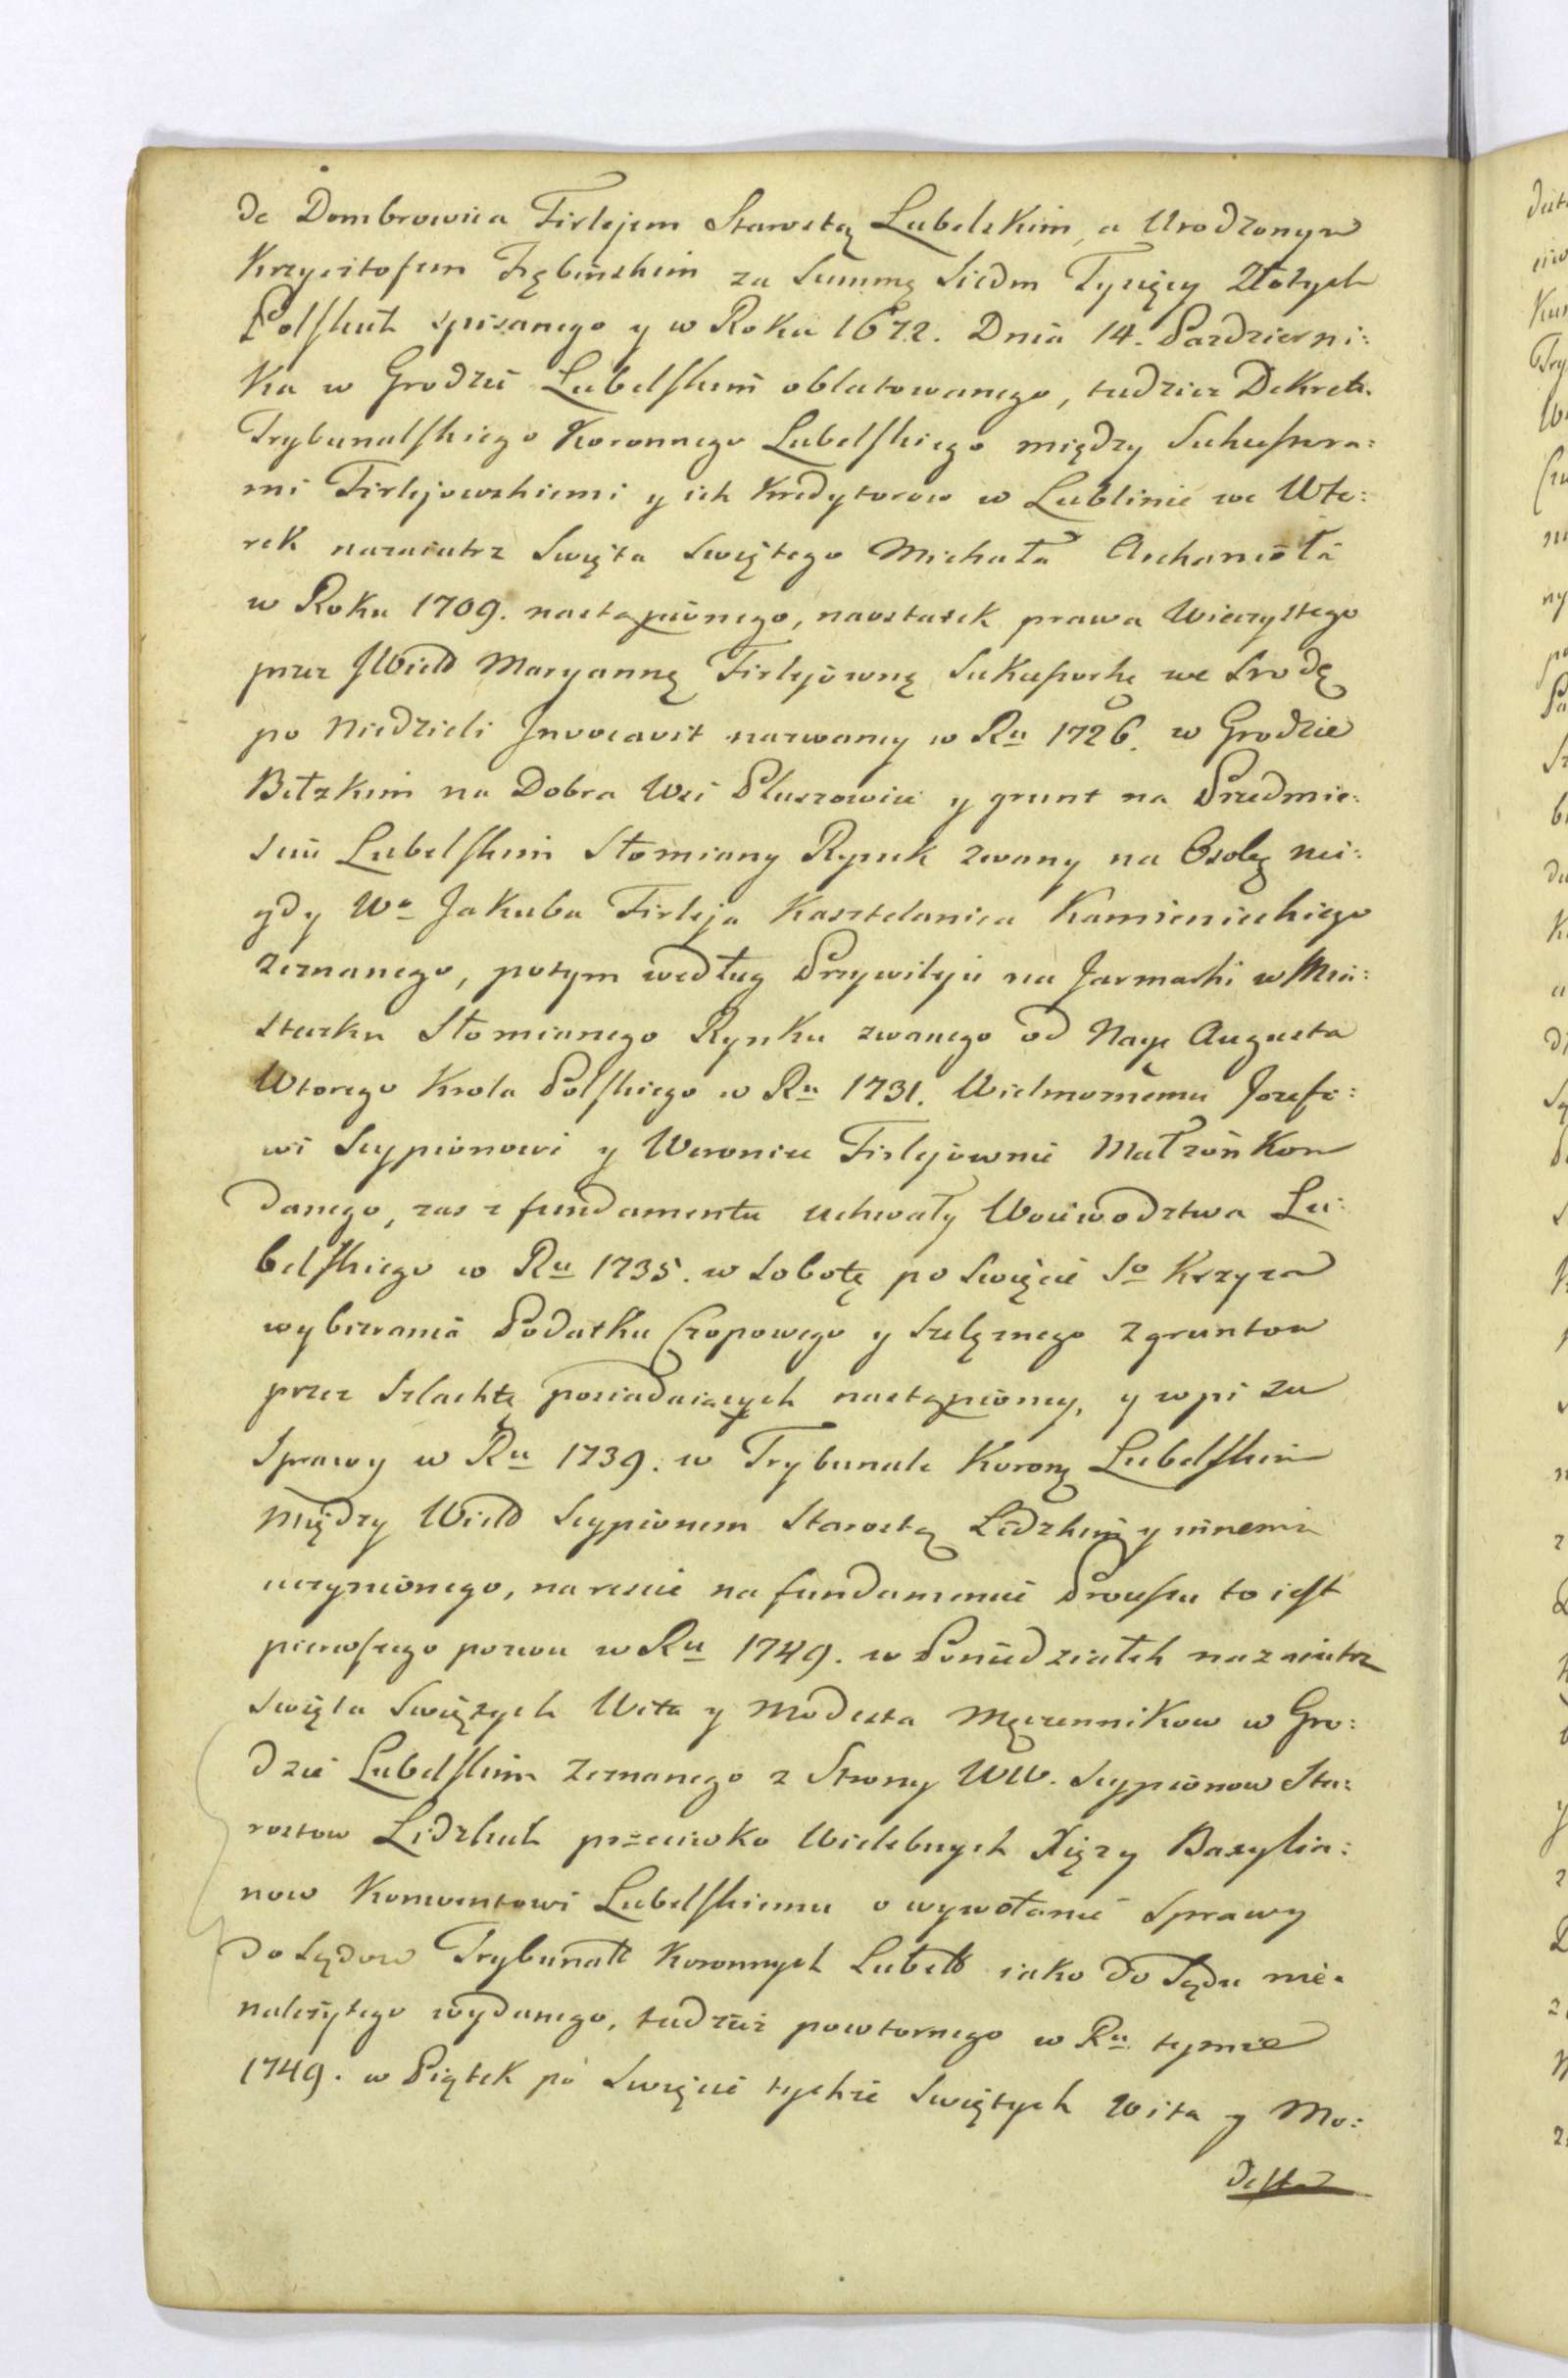 de Dombrowica Firlejem Starostą Lubelskim, a Urodzonym
Krzysztofem Zębińskim za Summę Siedm Tysięcy Złotych
Polskich spisanego y w Roku 1672. Dnia 14. Pazdzierni:
ka w Grodzie Lubelskim oblatowanego, tudziez Dekretu
Trybunalskiego Koronnego Lubelskiego między Sukcessora:
mi Firlejowskiemi y ich Kredytorow w Lublinie we Wto:
rek nazaiutrz Swięta Swiętego Michała Archanioła
w Roku 1709. nastąpionego, naostatek prawa Wieczystego
przez JWield Maryannę Firlejowną Sukcessorkę we Srodę
po Niedzieli Invocavit nazwaney w Ru 1726. w Grodzie
Bełzkim na Dobra Wsi Pluszowice y grunt na Przedmie:
sciu Lubelskim Słomiany Rynek zwany na Osobę nie:
gdy Wo Jakuba Firleja Kasztelanica Kamienieckiego
zeznanego, potym według Przywileju na Jarmarki w Mia:
steczku Słomianego Rynku zwanego od Nayi Augusta
Wtorego Krola Polskiego w Ru 1731. Wielmoznemu Jozefo:
wi Scypionowi y Weronice Firlejownie Małzonkow
danego, zas z fundamentu uchwały Woiewodztwa Lu:
belskiego w Ru 1735. w Sobotę po Swięcie So Krzyza
wybierania Podatku Czopowego y Szelęznego z gruntow
przez Szlachtę posiadaiących nastąpioney, y wpisu
Sprawy w Ru 1739. w Trybunale Koronę Lubelskim
między Wield Scypionem Starostą Lidzkim y innemi
uczynionego, narescie na fundamencie Processu to iest
pierwszego pozwu w Ru 1749. w Poniedziałek nazaiutrz
Swięta Swiętych Wita y Modesta Męczennikow w Gro:
dzie Lubelskim zeznanego z Strony WW. Scypionow Sta:
rostow Lidzkich przeciwko Wielebnych Xięzy Bazylia:
now Konwentowi Lubelskiemu o wywołanie Sprawy
do Sądow Trybunall Koronnych Lubell iako do Sądu nie:
nalezytego wydanego, tudziez powtornego w Ru tymze
1749. w Piątek po Swięcie tychze Swiętych Wita y Mo:
desta